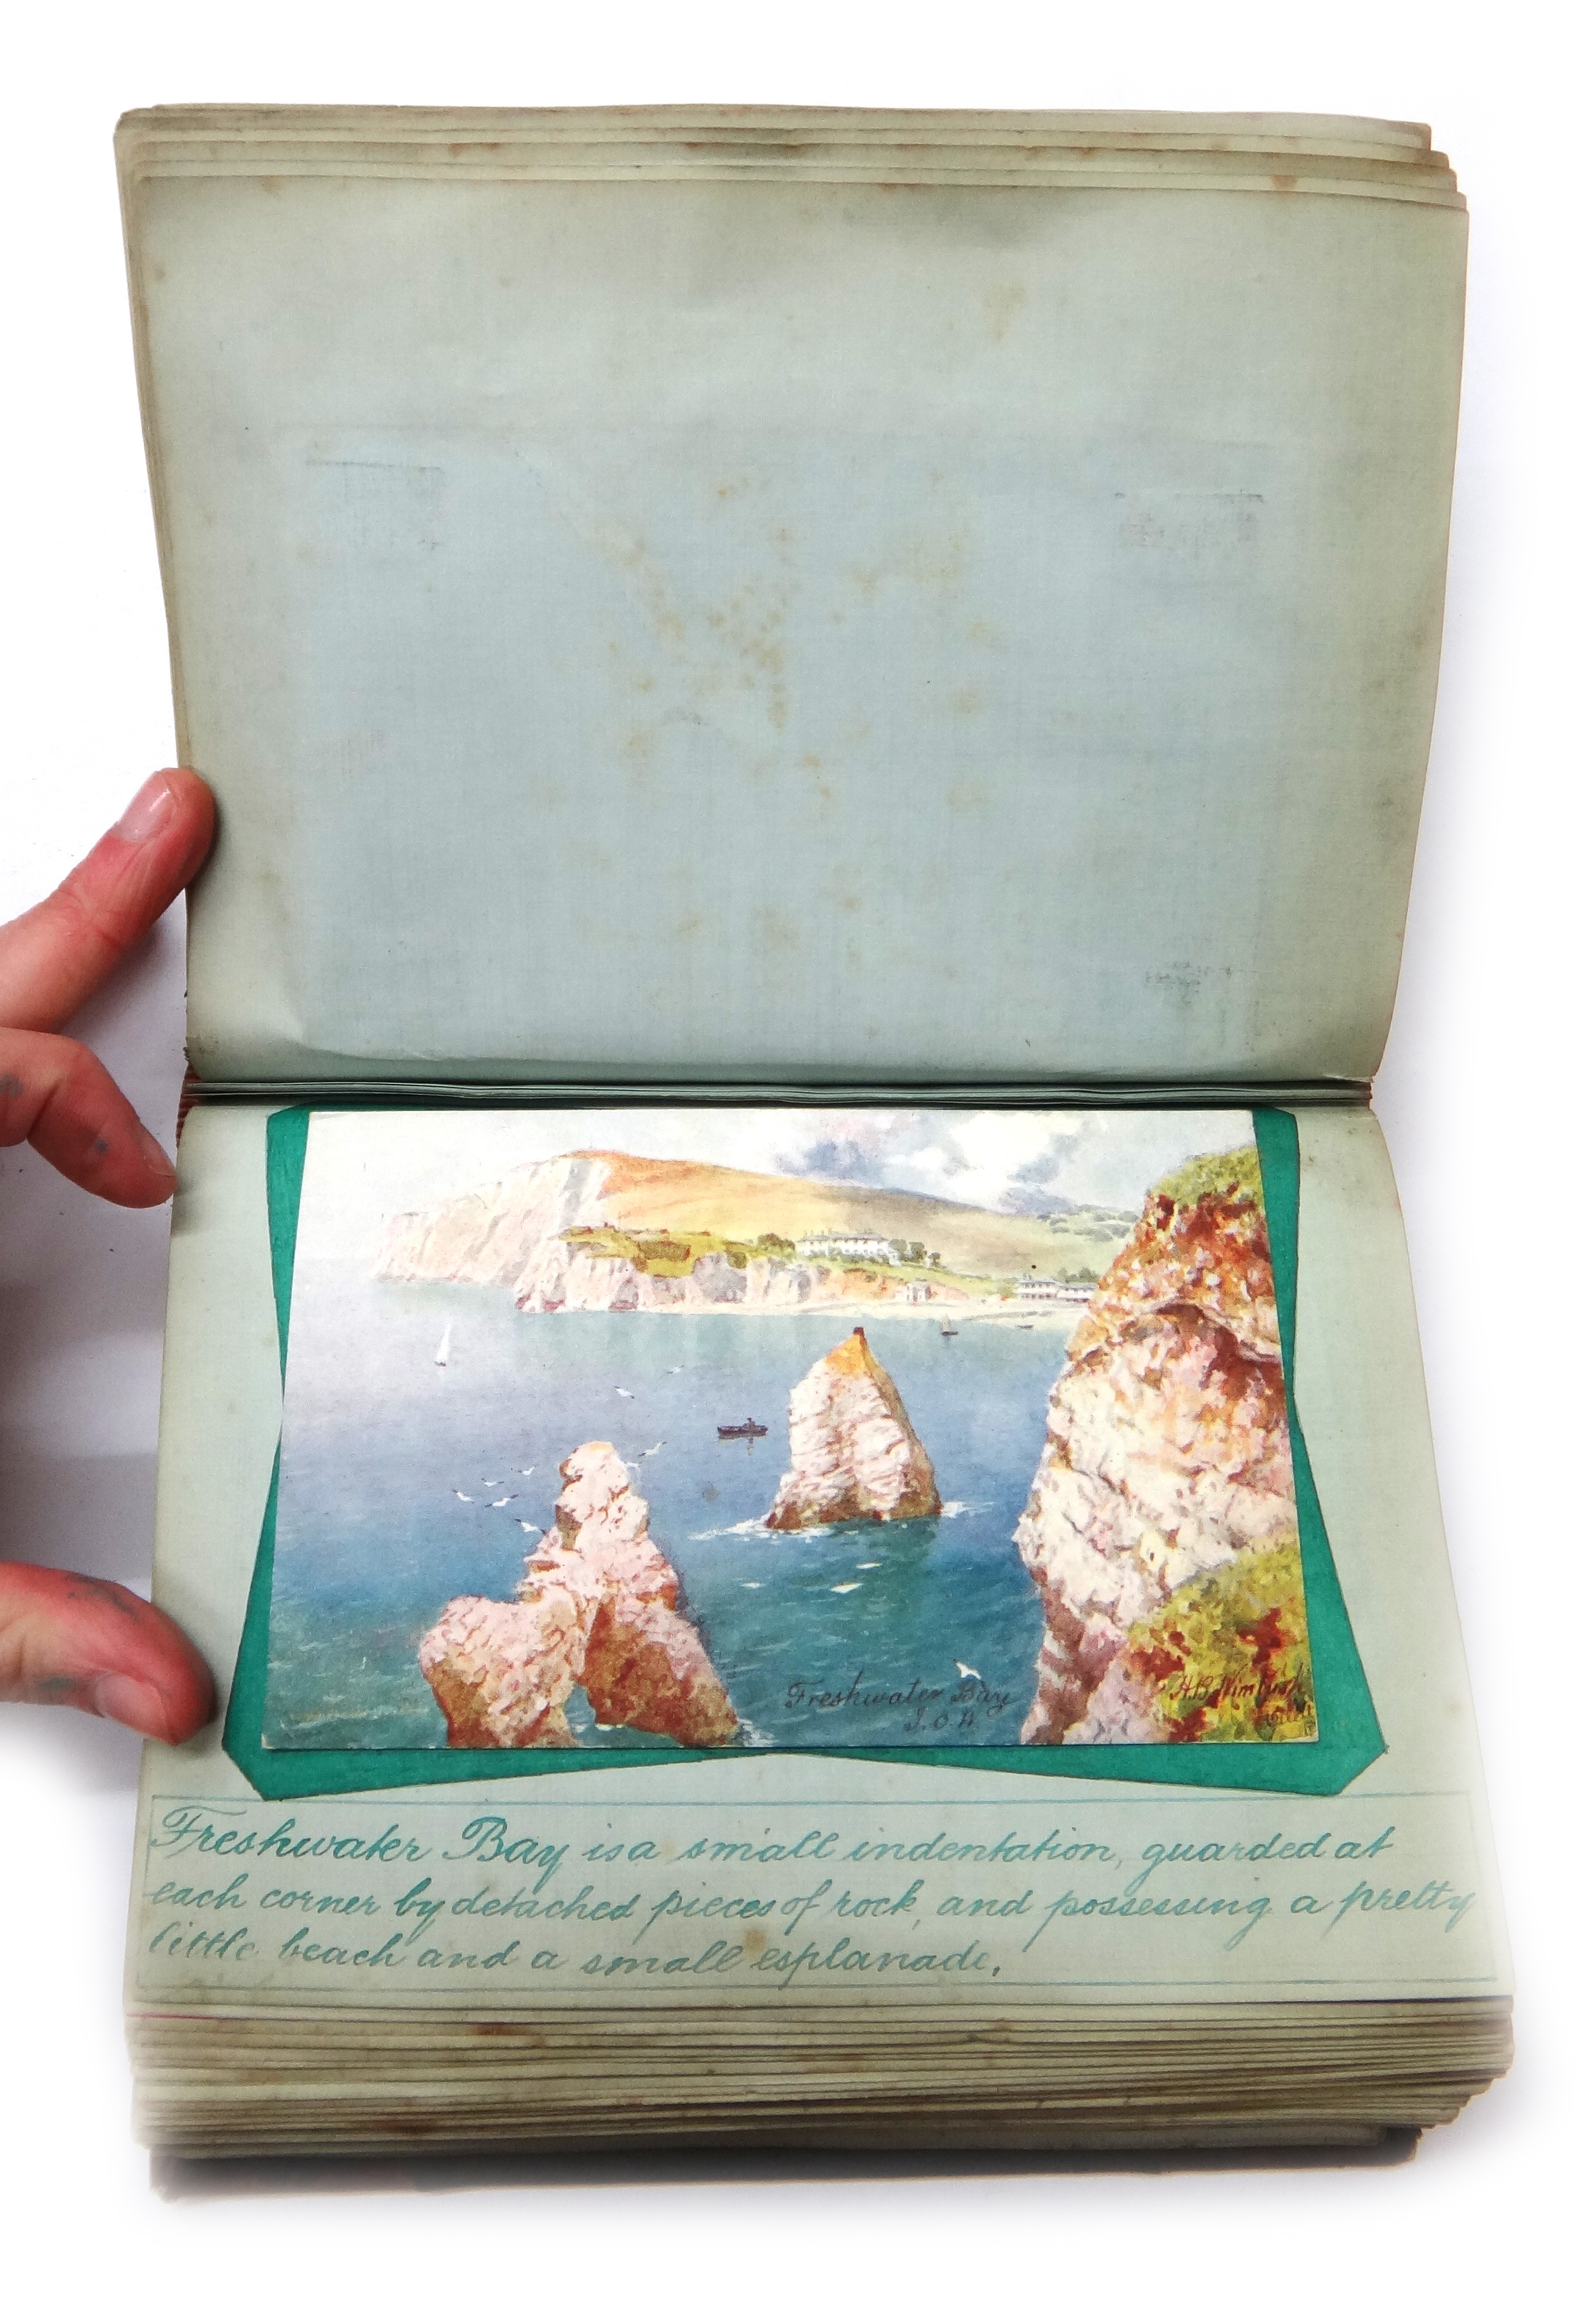 Freshwater Bay
I. O. W
H.B. Wimbush
Freshwater Bay is a small indentation, guarded at
each corner by detached pieces of rock, and possessing a pretty
little beach and a small esplanade.